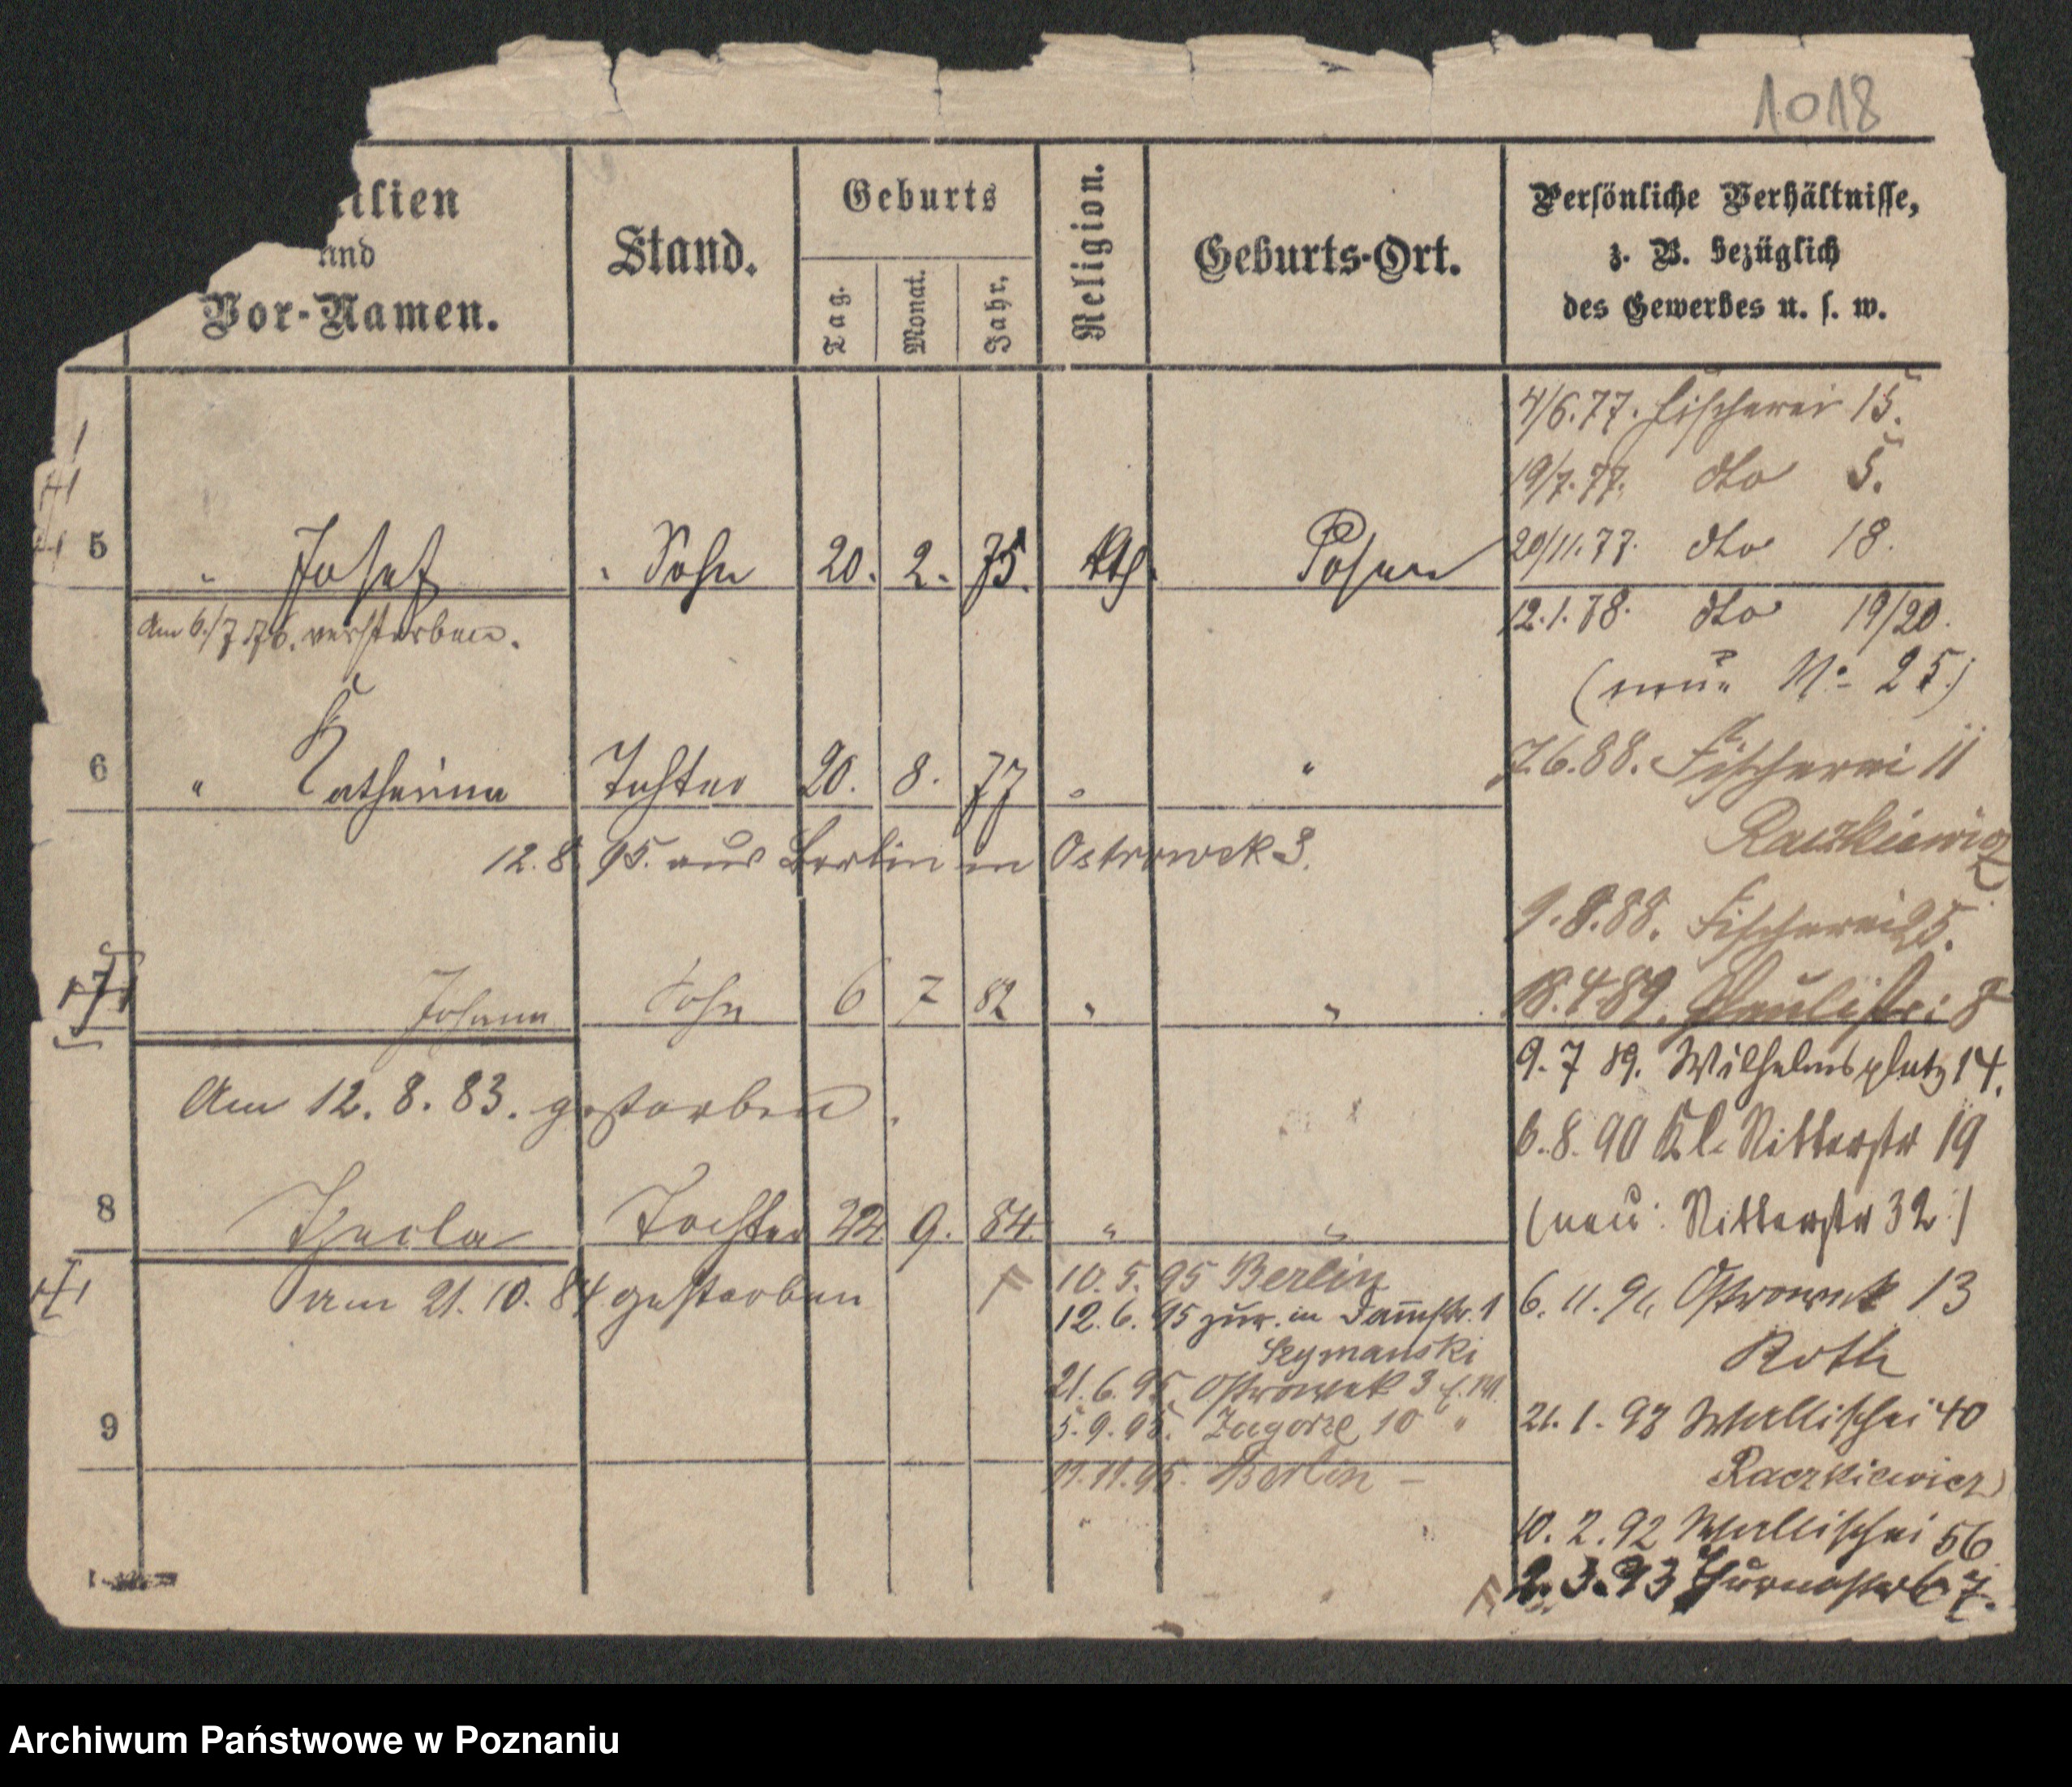 1018
ilien
und
Vor-Namen.
Stand.
Geburts
Tag.
Monat.
Jahr.
Religion.
Geburts-Ort.
Persönliche Verhältnisse,
z. B. bezüglich
des Gewerbes u. s. w.
4/6.77. Fischerei 15.
19/7.77. dto 5.
20/11.77. dto 18.
5 " Josef " Sohn 20. 2. 75. kth. Posen
Am 6./7 76. verstorben.
12.1.78. dto 19/20.
(neue No 25.)
6 " Katharina Tochter 20. 8. 77 " "
7.6.88. Fischerei 11
Raczkiewicz
12.8.95. aus Berlin in Ostrowek 3.
9.8.88. Fischerei 25.
7 Johann Sohn 6 7 82 " "
18.4.89. Paulistr: 8
9.7 89. Wilhelmsplatz 14.
Am 12. 8. 83. gestorben.
6.8.90 Kl. Ritterstr 19
8 Thecla Tochter 22 9. 84. " "
(neu: Ritterstr 32.)
am 21. 10. 84 gestorben
10. 5. 95 Berlin
12. 6. 95 zur. in Dammstr. 1
Szymanski
21. 6. 95. Ostrowek 3
5. 9. 95. Zagorze 10 "
11. 11. 95. Berlin –
6. 11. 91. Ostrowek 13
Roth
9
21. 1. 92 Wallischei 40
Raczkiewicz
10. 2. 92 Wallischei 56
2. 3. 93 Thurmstr 67.
Archiwum Państwowe w Poznaniu